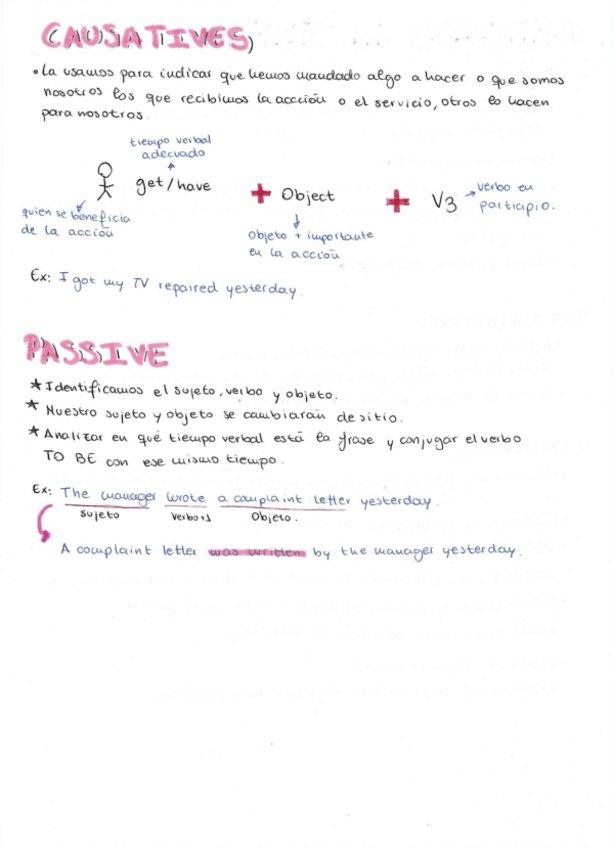 CAUSATIVES
• La usamos para indicar que hemos mandado algo a hacer o que somos
nosotros los que recibimos la acción o el servicio, otros lo hacen
para nosotros.
tiempo verbal
adecuado
get/have + Object + V3 → verbo en
participio.
quien se beneficia
de la acción
Objeto + importante
en la acción
Ex: I got my TV repaired yesterday.
PASSIVE
* Identificamos el sujeto, verbo y objeto.
* Nuestro sujeto y objeto se cambiarán de sitio.
* Analizar en qué tiempo verbal está la frase y conjugar el verbo
TO BE con ese mismo tiempo.
Ex: The manager wrote a complaint letter yesterday.
sujeto verbo Objeto.
A complaint letter was written by the manager yesterday.